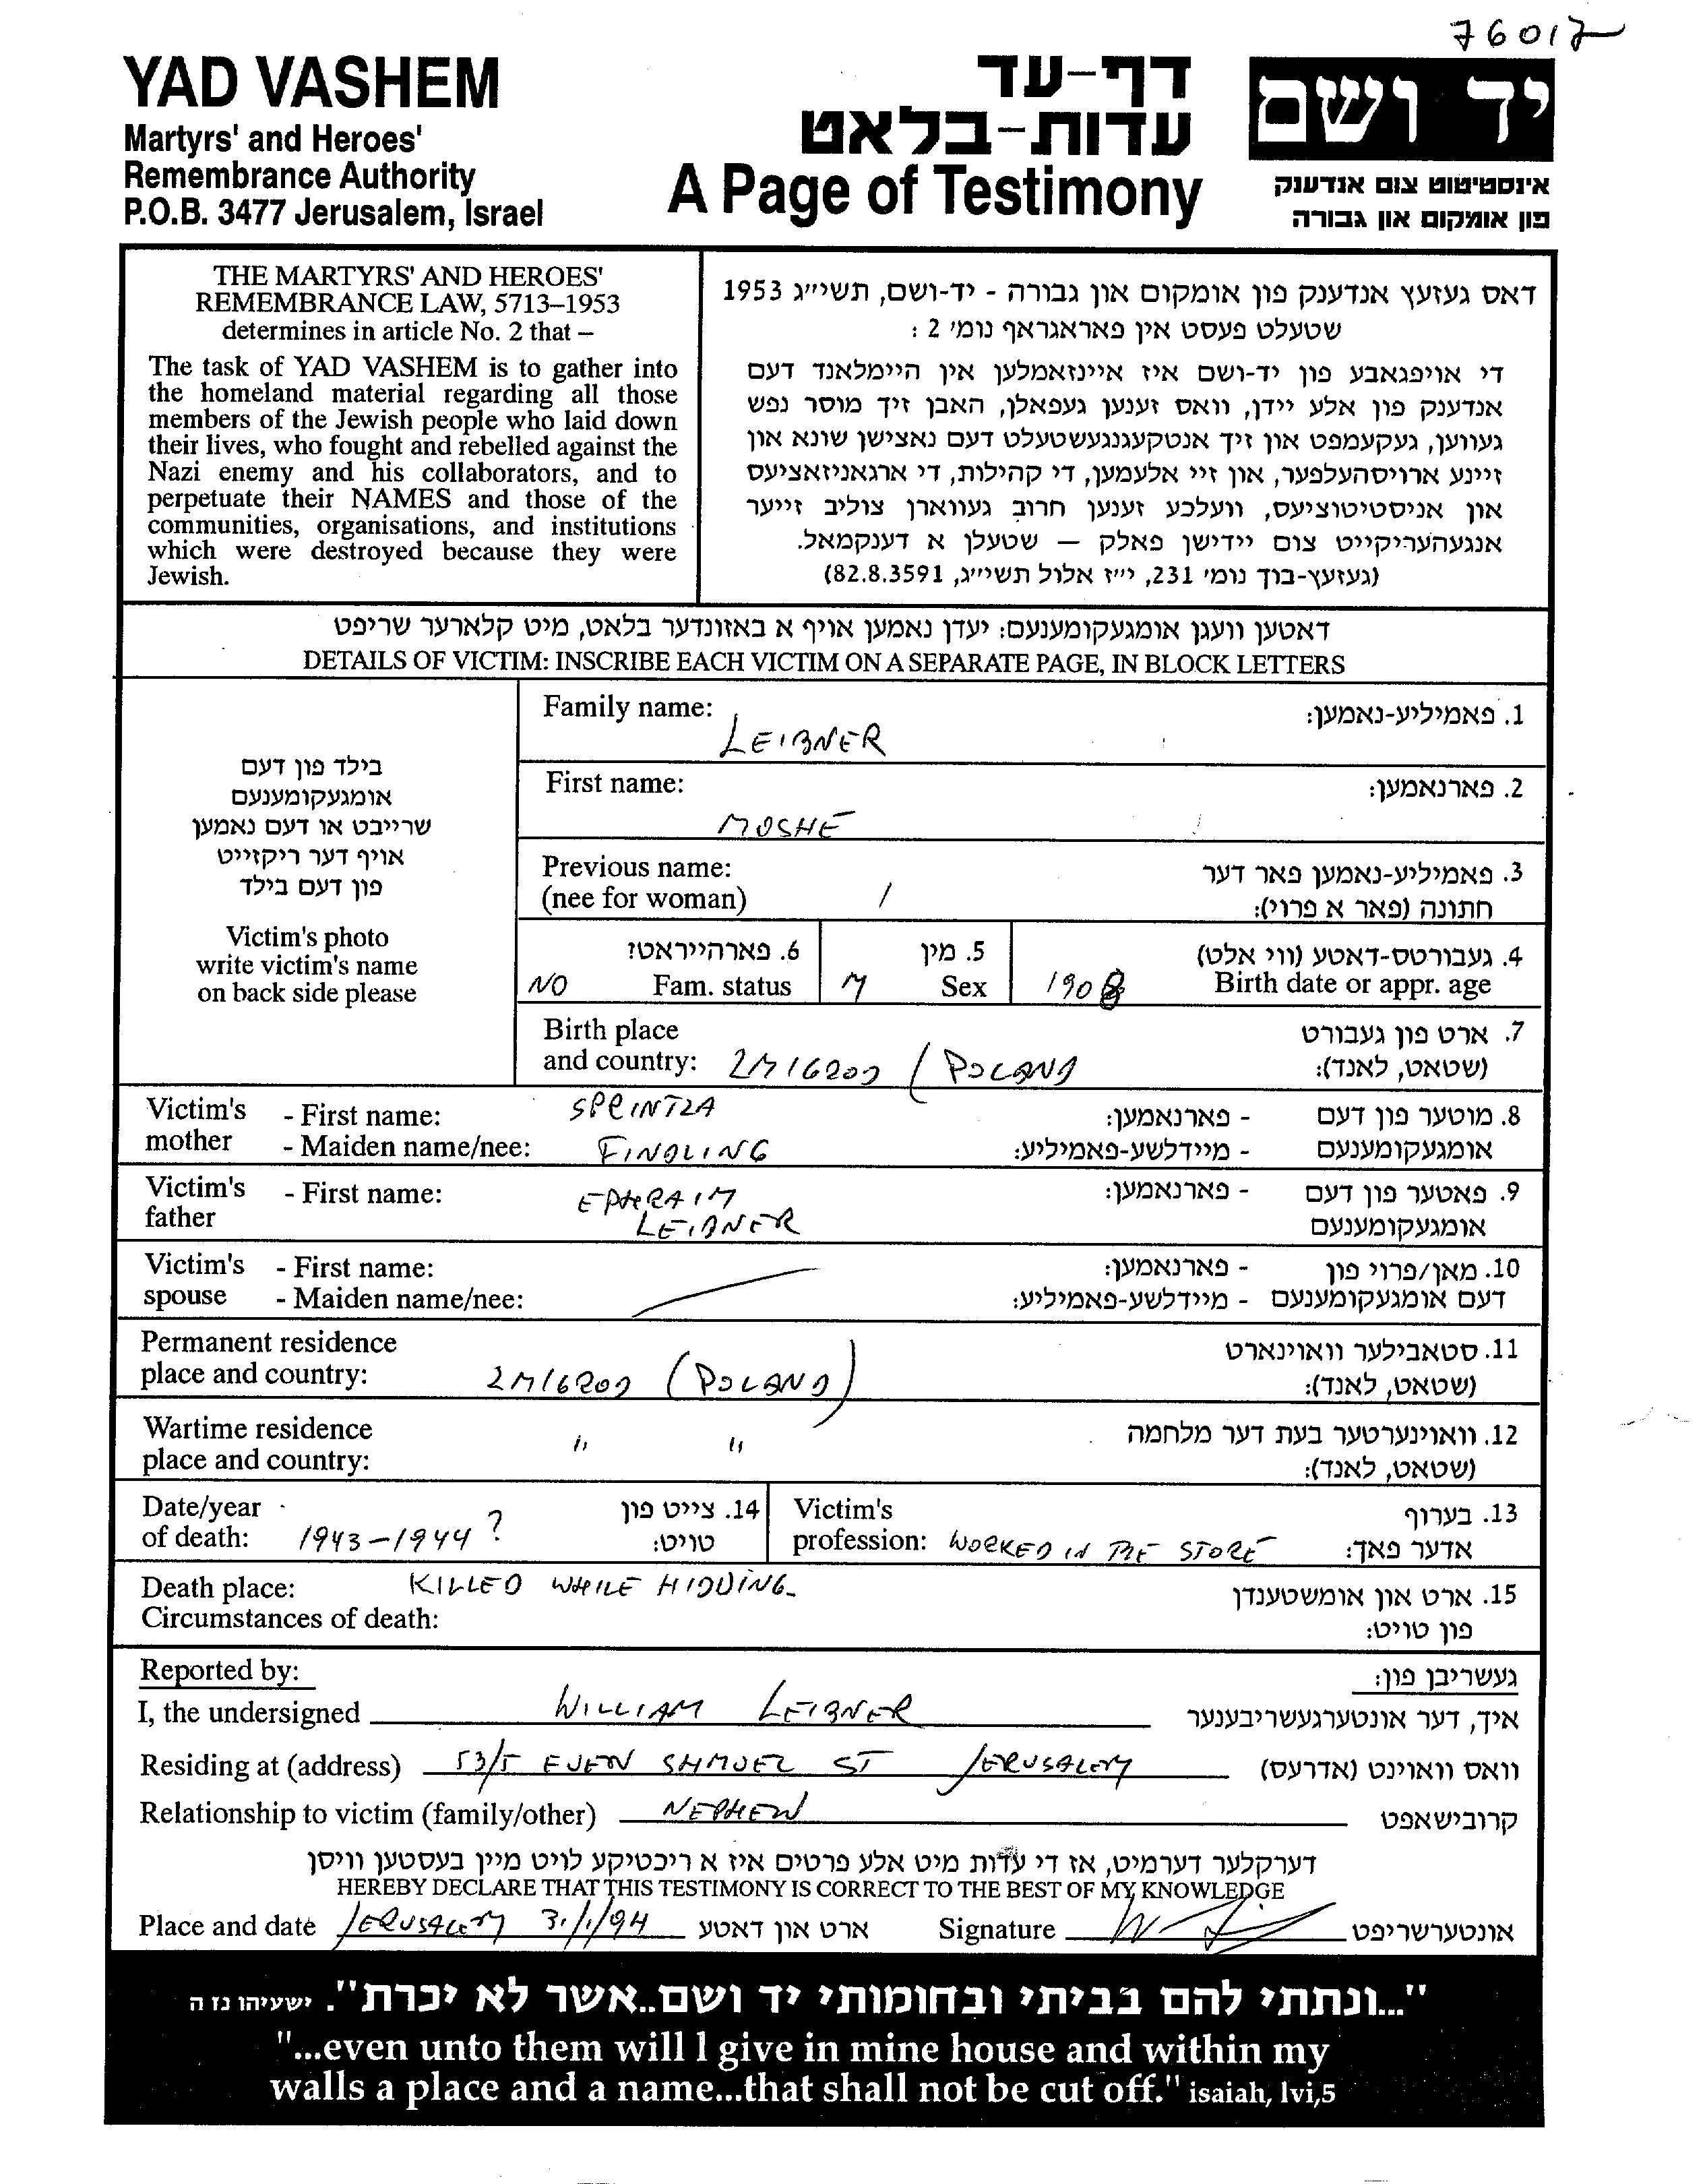 76017
YAD VASHEM
Martyrs' and Heroes'
Remembrance Authority
P.O.B. 3477 Jerusalem, Israel
דף-עד
עדות-בלאט
A Page of Testimony
יד ושם
אינסטיטוט צום אנדענק
פון אומקום און גבורה
THE MARTYRS' AND HEROES'
REMEMBRANCE LAW, 5713–1953
determines in article No. 2 that –
The task of YAD VASHEM is to gather into
the homeland material regarding all those
members of the Jewish people who laid down
their lives, who fought and rebelled against the
Nazi enemy and his collaborators, and to
perpetuate their NAMES and those of the
communities, organisations, and institutions
which were destroyed because they were
Jewish.
דאס געזעץ אנדענק פון אומקום און גבורה - יד-ושם, תשי״ג 1953
שטעלט פעסט אין פאראגראף נומ׳ 2 :
די אויפגאבע פון יד-ושם איז איינזאמלען אין היימלאנד דעם
אנדענק פון אלע יידן, וואס זענען געפאלן, האבן זיך מוסר נפש
געווען, געקעמפט און זיך אנטקעגנגעשטעלט דעם נאצישן שונא און
זיינע ארויסהעלפער, און זיי אלעמען, די קהילות, די ארגאניזאציעס
און אניסטיטוציעס, וועלכע זענען חרוב געווארן צוליב זייער
אנגעהעריקייט צום יידישן פאלק — שטעלן א דענקמאל.
(געזעץ-בוך נומ׳ 231, י״ז אלול תשי״ג, 82.8.3591)
דאטען וועגן אומגעקומענעם: יעדן נאמען אויף א באזונדער בלאט, מיט קלארער שריפט
DETAILS OF VICTIM: INSCRIBE EACH VICTIM ON A SEPARATE PAGE, IN BLOCK LETTERS
בילד פון דעם
אומגעקומענעם
שרייבט או דעם נאמען
אויף דער ריקזייט
פון דעם בילד
Victim's photo
write victim's name
on back side please
Family name: LEIBNER 1. פאמיליע-נאמען:
First name: MOSHE 2. פארנאמען:
Previous name: 3. פאמיליע-נאמען פאר דער
(nee for woman) / חתונה (פאר א פרוי):
6. פארהייראט? 5. מין 4. געבורטס-דאטע (ווי אלט)
NO Fam. status M Sex 1908 Birth date or appr. age
Birth place 7. ארט פון געבורט
and country: (POLAND (שטאט, לאנד):
Victim's - First name: SPRINTZA - פארנאמען: 8. מוטער פון דעם
mother - Maiden name/nee: FINDLING - מיידלשע-פאמיליע: אומגעקומענעם
Victim's - First name: EPHRAIM - פארנאמען: 9. פאטער פון דעם
father LEIBNER אומגעקומענעם
Victim's - First name: - פארנאמען: 10. מאן/פרוי פון
spouse - Maiden name/nee: - מיידלשע-פאמיליע: דעם אומגעקומענעם
Permanent residence 11. סטאבילער וואוינארט
place and country: (POLAND) (שטאט, לאנד):
Wartime residence " " 12. וואוינערטער בעת דער מלחמה
place and country: (שטאט, לאנד):
Date/year 14. צייט פון Victim's 13. בערוף
of death: 1943-1944 ? טויט: profession: WORKED IN THE STORE אדער פאך:
Death place: KILLED WHILE HIDDING 15. ארט און אומשטענדן
Circumstances of death: פון טויט:
Reported by: געשריבן פון:
I, the undersigned WILLIAM LEIBNER איך, דער אונטערגעשריבענער
Residing at (address) 53/5 EVEN SHMUEL ST JERUSALEM וואס וואוינט (אדרעס)
Relationship to victim (family/other) NEPHEW קרובישאפט
דערקלער דערמיט, אז די עדות מיט אלע פרטים איז א ריכטיקע לויט מיין בעסטען וויסן
HEREBY DECLARE THAT THIS TESTIMONY IS CORRECT TO THE BEST OF MY KNOWLEDGE
Place and date JERUSALEM 3/1/94 ארט און דאטע Signature אונטערשריפט
"...ונתתי להם בביתי ובחומותי יד ושם..אשר לא יכרת". ישעיהו נז ה
"...even unto them will I give in mine house and within my
walls a place and a name...that shall not be cut off." isaiah, lvi,5